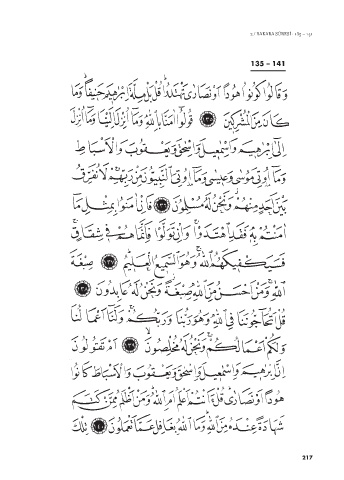 2 / BAKARA SÛRESİ 135 – 141
135 – 141
وَقَالُوا كُونُوا هُودًا اَوْ نَصَارٰى تَهْتَدُوا قُلْ بَلْ مِلَّةَ اِبْرٰهٖيمَ حَنٖيفًا وَمَا
كَانَ مِنَ الْمُشْرِكٖينَ ﴿١٣٥﴾ قُولُوا اٰمَنَّا بِاللّٰهِ وَمَا اُنْزِلَ اِلَيْنَا وَمَا اُنْزِلَ
اِلٰى اِبْرٰهٖيمَ وَاِسْمٰعٖيلَ وَاِسْحٰقَ وَيَعْقُوبَ وَالْاَسْبَاطِ
وَمَا اُوتِيَ مُوسٰى وَعٖيسٰى وَمَا اُوتِيَ النَّبِيُّونَ مِنْ رَبِّهِمْ لَا نُفَرِّقُ
بَيْنَ اَحَدٍ مِنْهُمْ وَنَحْنُ لَهُ مُسْلِمُونَ ﴿١٣٦﴾ فَاِنْ اٰمَنُوا بِمِثْلِ مَا
اٰمَنْتُمْ بِهٖ فَقَدِ اهْتَدَوْا وَاِنْ تَوَلَّوْا فَاِنَّمَا هُمْ فٖي شِقَاقٍ
فَسَيَكْفٖيكَهُمُ اللّٰهُ وَهُوَ السَّمٖيعُ الْعَلٖيمُ ﴿١٣٧﴾ صِبْغَةَ
اللّٰهِ وَمَنْ اَحْسَنُ مِنَ اللّٰهِ صِبْغَةً وَنَحْنُ لَهُ عَابِدُونَ ﴿١٣٨﴾
قُلْ اَتُحَاجُّونَنَا فِي اللّٰهِ وَهُوَ رَبُّنَا وَرَبُّكُمْ وَلَنَا اَعْمَالُنَا
وَلَكُمْ اَعْمَالُكُمْ وَنَحْنُ لَهُ مُخْلِصُونَ ﴿١٣٩﴾ اَمْ تَقُولُونَ
اِنَّ اِبْرٰهٖيمَ وَاِسْمٰعٖيلَ وَاِسْحٰقَ وَيَعْقُوبَ وَالْاَسْبَاطَ كَانُوا
هُودًا اَوْ نَصَارٰى قُلْ ءَاَنْتُمْ اَعْلَمُ اَمِ اللّٰهُ وَمَنْ اَظْلَمُ مِمَّنْ كَتَمَ
شَهَادَةً عِنْدَهُ مِنَ اللّٰهِ وَمَا اللّٰهُ بِغَافِلٍ عَمَّا تَعْمَلُونَ ﴿١٤٠﴾ تِلْكَ
217